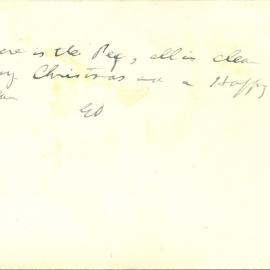 ere is the Peg, all is clear
ry Christmas and a Happy
ear
GD